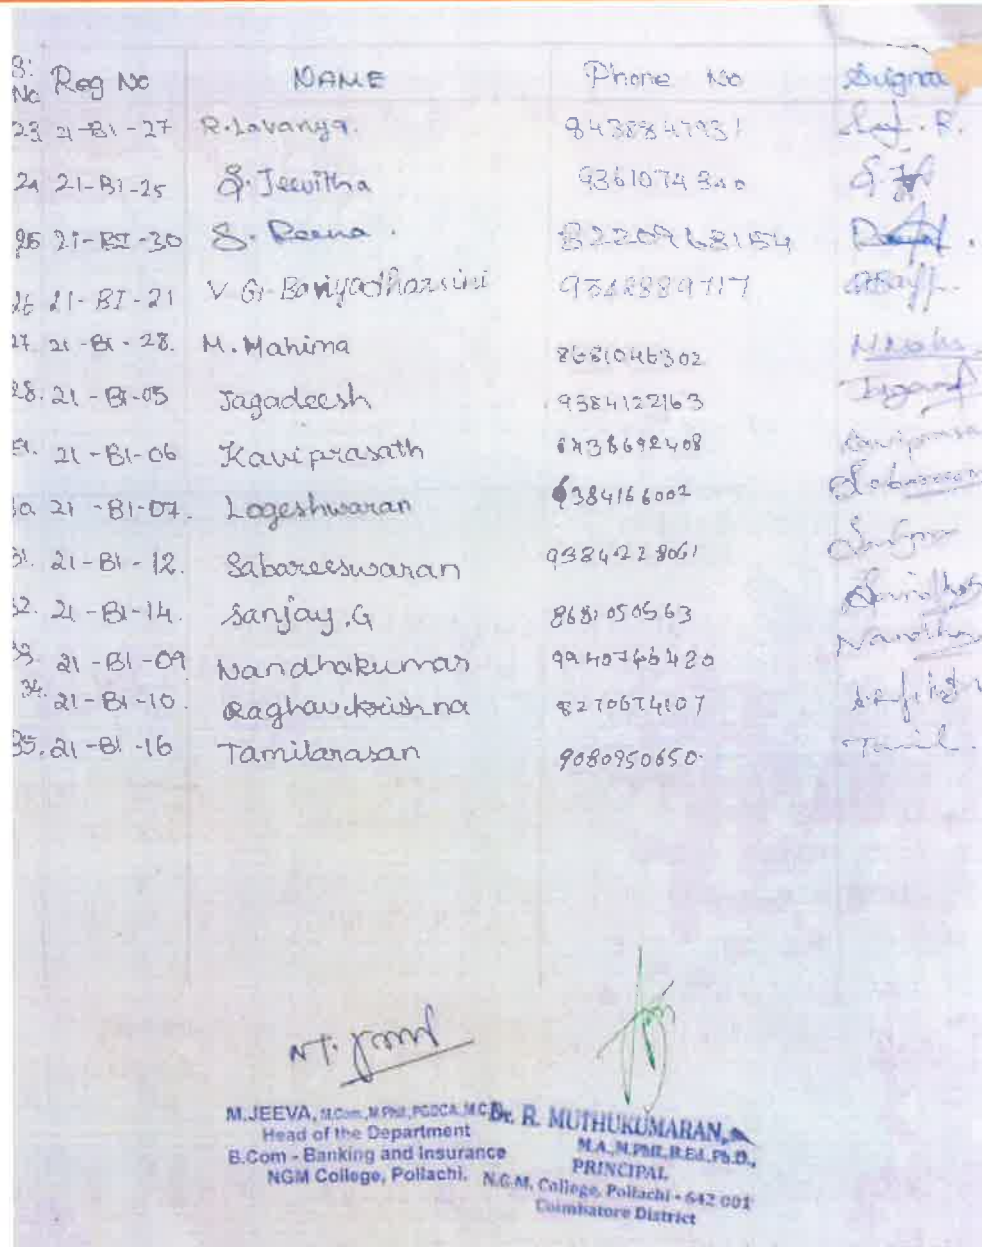 S. No Reg No NAME Phone No Signa
23 21-BI-27 R.Lavanya. 8438847931
24 21-BI-25 S.Jeevitha 9361074340
25 21-BI-30 S. Reena. 8220968154
26 21-BI-21 V.G.
27. 21-BI-28. M.Mahima 8681046302
28. 21-BI-05 Jagadeesh 9384122163
21-BI-06 Kaviprasath 6438692408
21-BI-07. Logeshwaran 6384166002
31. 21-BI-12. Sabareeswaran 9384228061
32. 21-BI-14. Sanjay.G 8681050563
33. 21-BI-09 Nandhakumar
34. 21-BI-10. Raghavkrishna 8270674107
35. 21-BI-16 Tamilarasan 9080950650. Tamil.
M.JEEVA, M.Com., M.Phil., PGDCA.
Head of the Department
B.Com - Banking and Insurance
NGM College, Pollachi.
Dr. R. MUTHUKUMARAN,
M.A., M.Phil., B.Ed., Ph.D.,
PRINCIPAL
N.G.M. College, Pollachi - 642 001
Coimbatore District